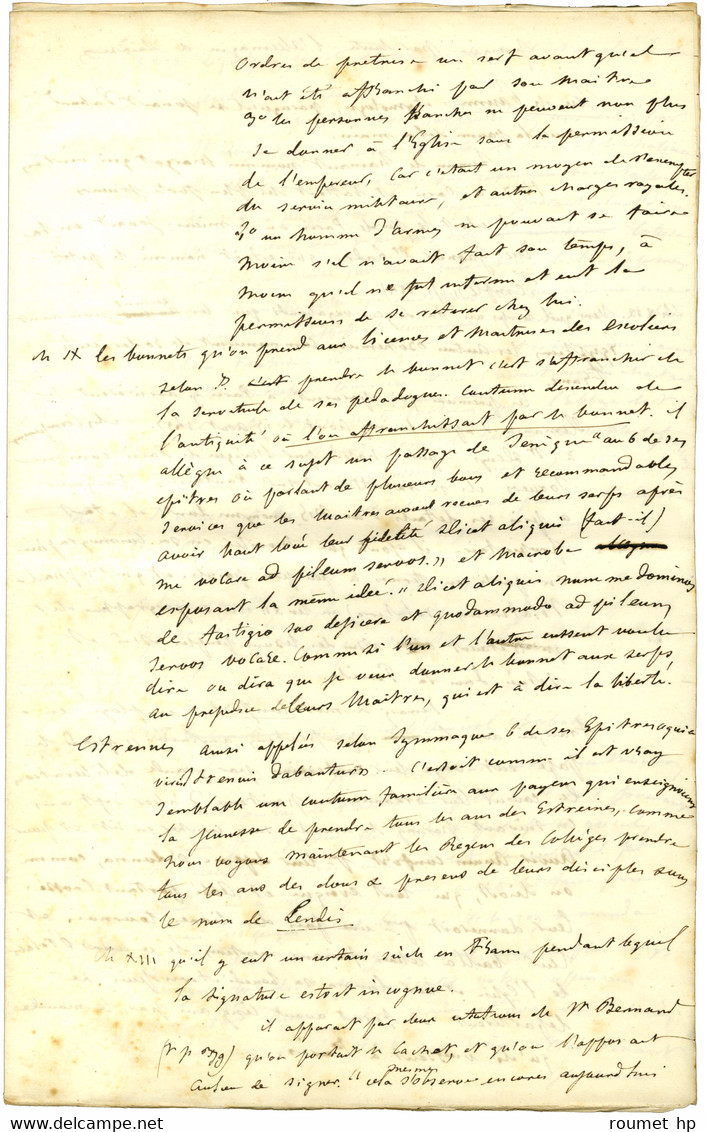 ordres de prêtrise un serf avant qu'il
n'ait été affranchi par son maitre
3o les personnes franches ne peuvent non plus
se donner à l'Eglise sans la permission
de l'empereur, car c'était un moyen de s'exempter
du service militaire, et autres charges royales.
3o un homme d'armes ne pouvait se faire
moine s'il n'avait fait son temps, à
moins qu'il ne fut infirme et eut la
permission de se retirer chez lui.
ch IX les bonnets qu'on prend aux licences et maitrises des escoliers
selon P. c'est prendre le bonnet c'est s'affranchir de
la servitude de ses pédadogues. Coutume descendue de
l'antiquité où l'on affranchissait par le bonnet. il
allègue à ce sujet un passage de Senèque au 6 de ses
epitres où parlant de plusieurs bons et recommandables
services que les maitres avoient receues de leurs serfs après
avoir haut loué leur fidelité dicet aliquis (fait-il)
me vocare ad pileum servos." et Macrobe
exposant la même idée. "dicet aliquis nunc me dominos
de fastigio suo dejicere et quodammodo ad pileum
servos vocare. Comme si l'un et l'autre eussent voulu
dire on dira que je veux donner le bonnet aux serfs
au prejudice de leurs Maitres, qui est à dire la liberté.
Estrennes ainsi appelés selon Symmaque 6 de ses Epitres quia
viris strenuis dabantur. C'estoit comme il est vray
semblable une coutume familière aux payens qui enseignoient
la jeunesse de prendre tous les ans des Estreines, comme
nous voyons maintenant les Regens des Collèges prendre
tous les ans des dons & presens de leurs disciples sous
le nom de Lendis
ch XIII qu'il y eut un certain siècle en France pendant lequel
la signature estoit incognue.
il apparait par deux de St Bernard
qu'on portait le cachet, et qu'on l'apposait
au lieu de signer. "cela s'observe encores aujourd'hui
roumet hp
roumet hp